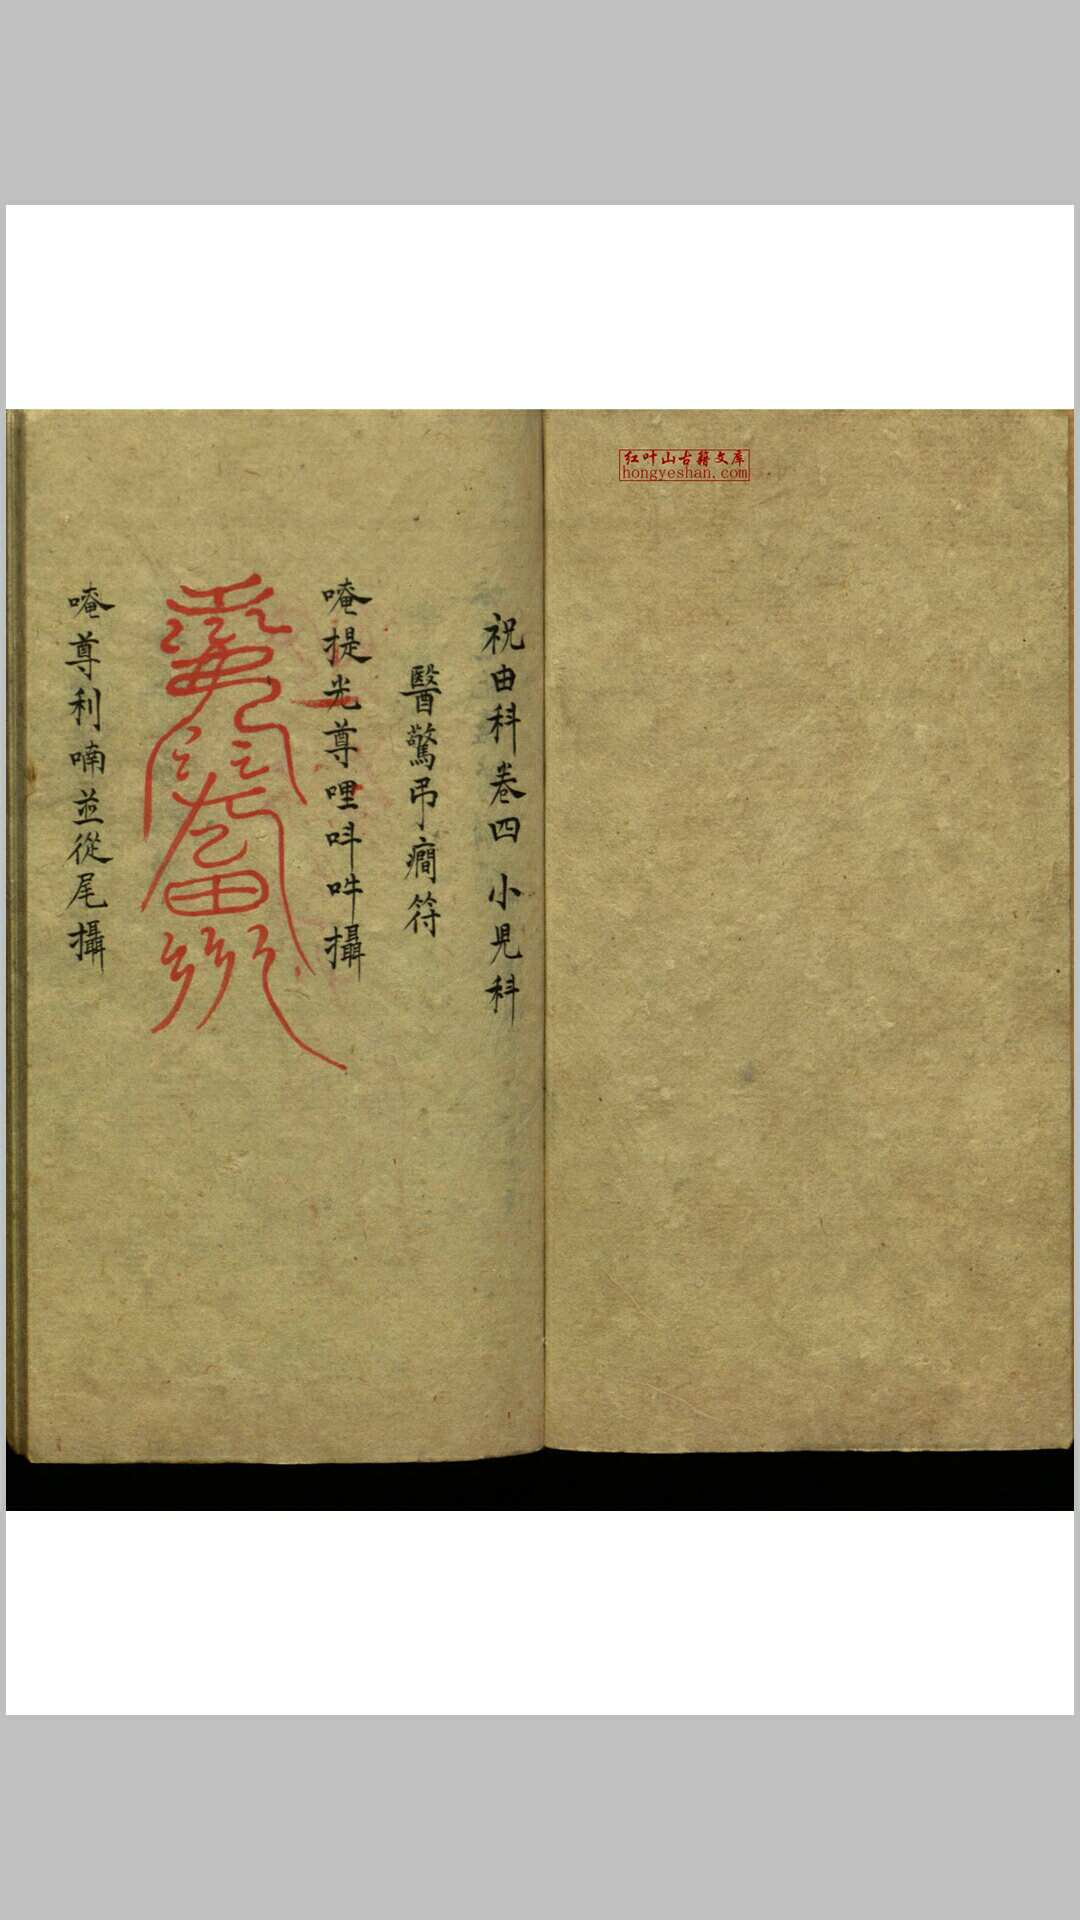 红叶山古籍文库
hongyeshan.com
祝由科卷四 小児科
醫驚弔癎符
唵提光尊哩呌吽攝
唵尊利喃並從尾攝